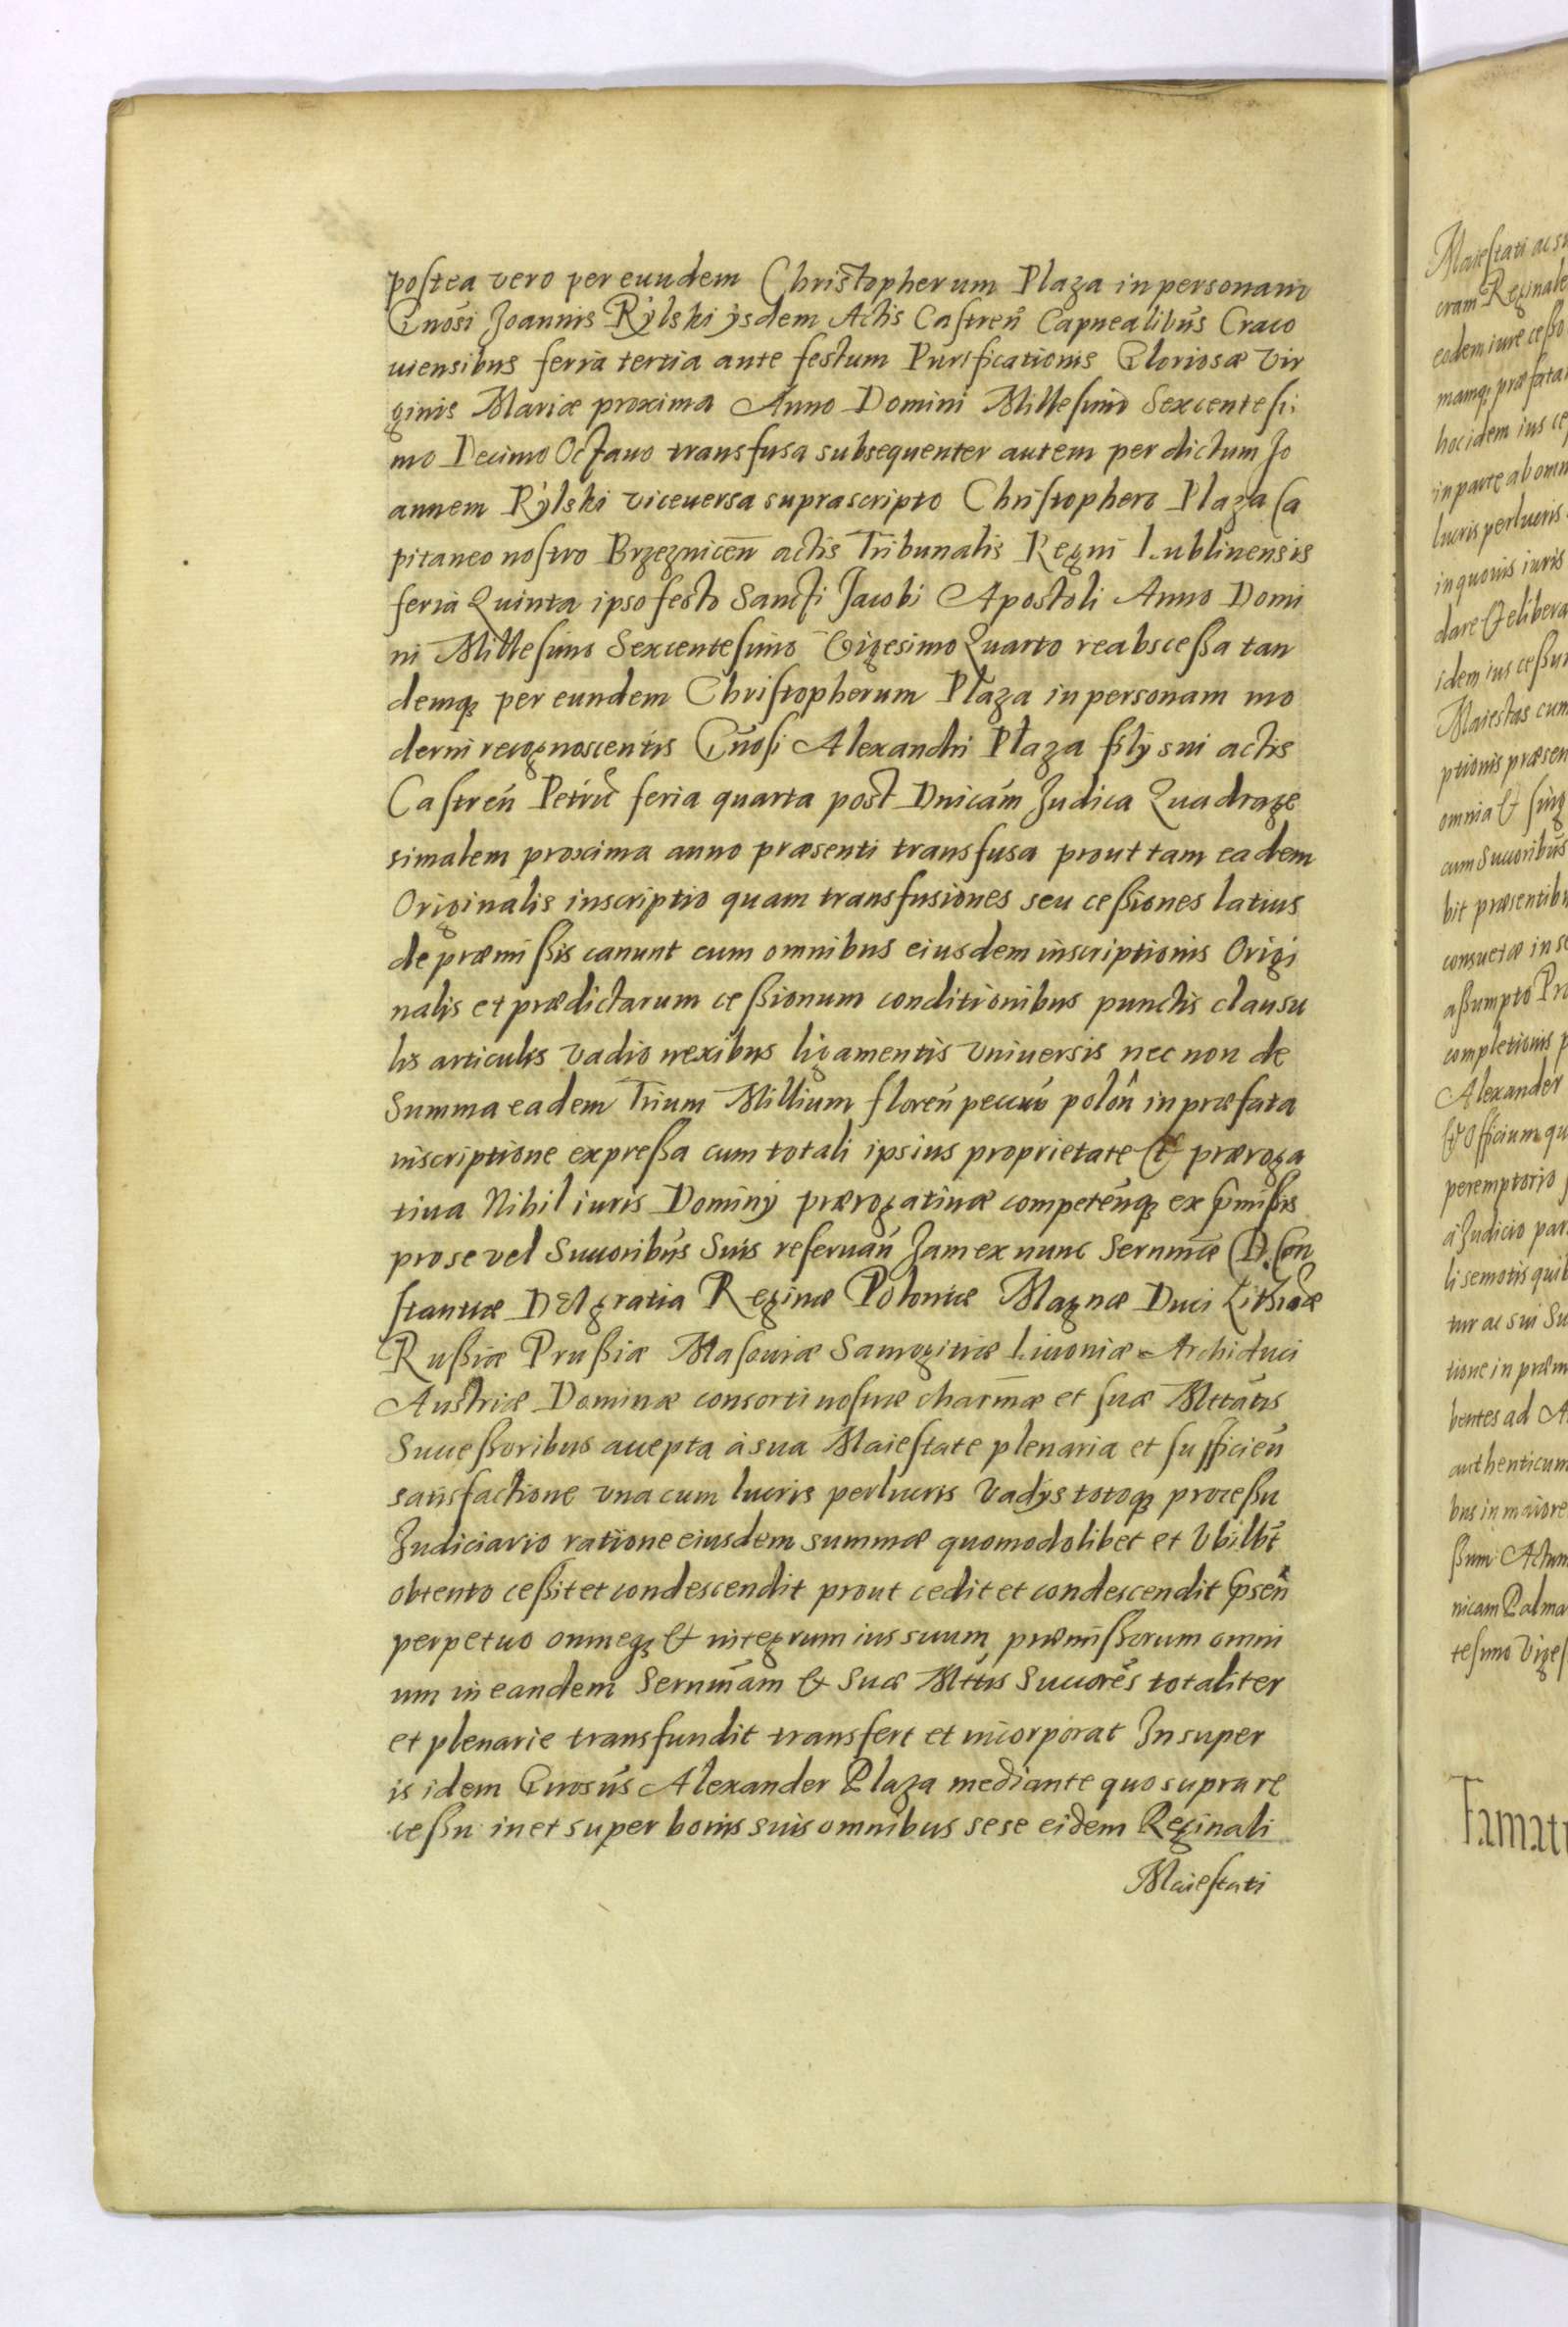 postea vero per eundem Christopherum Plaza in personam
Gnosi Joannis Rylski ijsdem Actis Castren Capnealibus Craco
viensibus feria tertia ante festum Purificationis Gloriosæ Vir
ginis Mariæ proxima Anno Domini Millesimo Sexcentesi
mo Decimo Octavo transfusa subsequenter autem per dictum Jo
annem Rylski viceversa suprascripto Christophero Plaza Ca
pitaneo nostro Brzeznicen actis Tribunalis Regni Lublinensis
feria Quinta ipso festo Sancti Jacobi Apostoli Anno Domi
ni Millesimo Sexcentesimo Vigesimo Quarto reabscessa tan
demq per eundem Christopherum Plaza in personam mo
derni recognoscentis Gnosi Alexandri Plaza filij sui actis
Castren Petric feria quarta post Dnicam Judica Quadrage
simalem proxima anno præsenti transfusa prout tam eadem
Originalis inscriptio quam transfusiones seu cessiones latius
de præmissis canunt cum omnibus eiusdem inscriptionis Origi
nalis et prædictarum cessionum conditionibus punctis clausu
lis articulis vadio nexibus ligamentis vniuersis nec non de
Summa eadem Trium Millium floren pecun polon in præfata
inscriptione expressa cum totali ipsius proprietate et præroga
tiua Nihil iuris Dominij prærogatiuæ competenq ex pmissis
pro se vel Succoribus Suis reseruan Jam ex nunc Sernmæ D. Con
stantiæ DEI gratia Reginæ Poloniæ Magnæ Duci Lithiæ
Russiæ Prussiæ Masouiæ Samogitiæ Liuoniæ Archiduci
Austriæ Dominæ consorti nostræ charmæ et suæ Mttatis
Successoribus accepta à sua Maiestate plenaria et sufficien
satisfactione vna cum lucris perlucris Vadijs totoq processu
Judiciario ratione eiusdem summæ quomodolibet et Vbilbt
obtento cessit et condescendit prout cedit et condescendit psen
perpetuo omneq & integrum ius suum præmissorum omni
um in eandem Sernmam & Suæ Mttis Succores totaliter
et plenarie transfundit transfert et incorporat Insuper
is idem Gnosus Alexander Plaza mediante quo supra re
cessu in et super bonis suis omnibus sese eidem Reginali
Maiestati